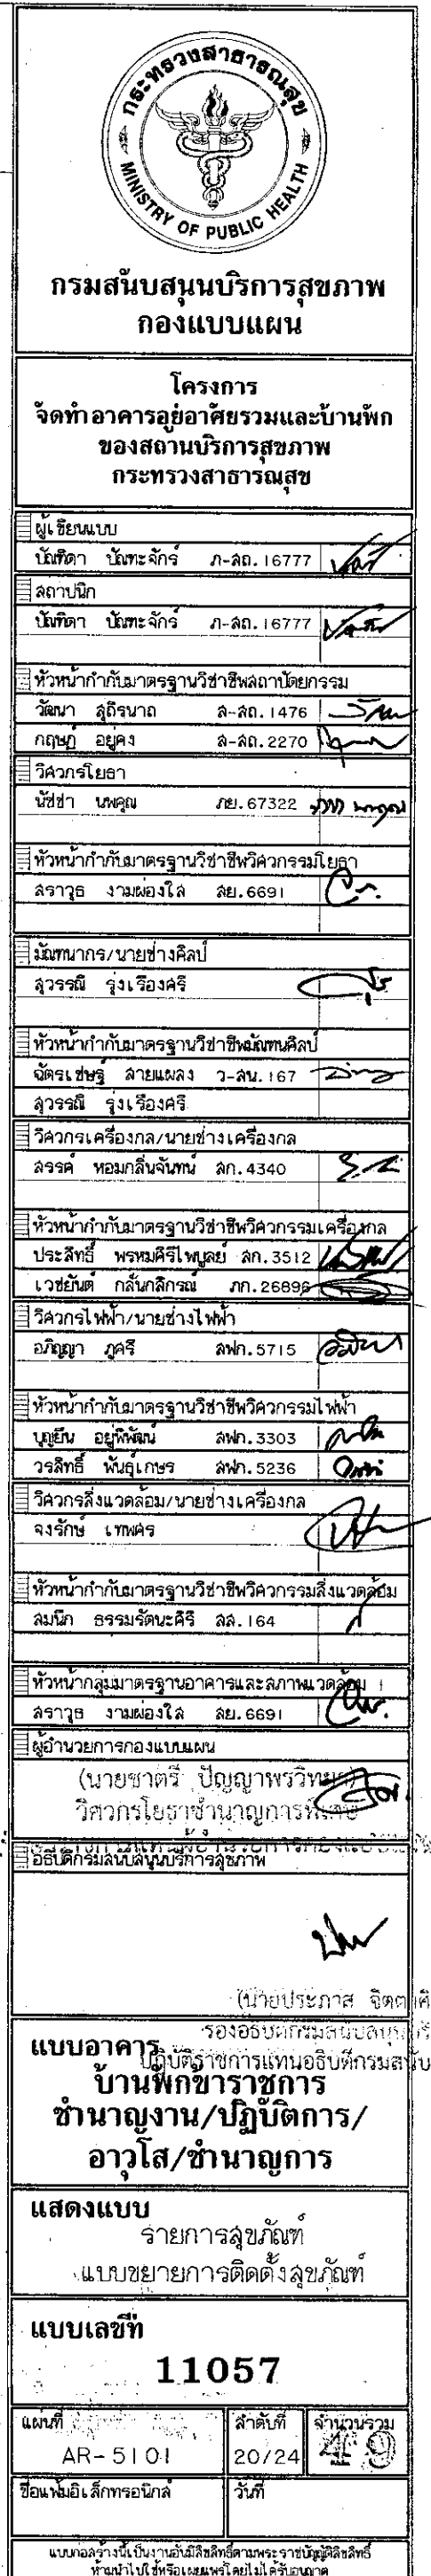 กระทรวงสาธารณสุข
MINISTRY OF PUBLIC HEALTH
กรมสนับสนุนบริการสุขภาพ
กองแบบแผน
โครงการ
จัดทำอาคารอยู่อาศัยรวมและบ้านพัก
ของสถานบริการสุขภาพ
กระทรวงสาธารณสุข
ผู้เขียนแบบ
บัณฑิตา บัณฑะจักร์ ภ-สถ.16777
สถาปนิก
บัณฑิตา บัณฑะจักร์ ภ-สถ.16777
หัวหน้ากำกับมาตรฐานวิชาชีพสถาปัตยกรรม
วัฒนา สุถิรนาถ ส-สถ.1476
กฤษฎ์ อยู่คง ส-สถ.2270
วิศวกรโยธา
นัชชา นพคุณ ภย.67322
หัวหน้ากำกับมาตรฐานวิชาชีพวิศวกรรมโยธา
สราวุธ งามผ่องใส สย.6691
มัณฑนากร/นายช่างศิลป์
สุวรรณี รุ่งเรืองศรี
หัวหน้ากำกับมาตรฐานวิชาชีพมัณฑนศิลป์
ฉัตรเชษฐ์ สายแผลง ว-สน.167
สุวรรณี รุ่งเรืองศรี
วิศวกรเครื่องกล/นายช่างเครื่องกล
สรรค์ หอมกลิ่นจันทน์ สก.4340
หัวหน้ากำกับมาตรฐานวิชาชีพวิศวกรรมเครื่องกล
ประสิทธิ์ พรหมคิรีไพบูลย์ สก.3512
เวชยันต์ กลั่นกสิกรณ์ ภก.26896
วิศวกรไฟฟ้า/นายช่างไฟฟ้า
อภิญญา ภูศรี สฟก.5715
หัวหน้ากำกับมาตรฐานวิชาชีพวิศวกรรมไฟฟ้า
บุญยืน อยู่พิพัฒน์ สฟก.3303
วรสิทธิ์ พันธุ์เกษร สฟก.5236
วิศวกรสิ่งแวดล้อม/นายช่างเครื่องกล
จงรักษ์ เทพศร
หัวหน้ากำกับมาตรฐานวิชาชีพวิศวกรรมสิ่งแวดล้อม
สมนึก ธรรมรัตนะคิรี สส.164
หัวหน้ากลุ่มมาตรฐานอาคารและสภาพแวดล้อม 1
สราวุธ งามผ่องใส สย.6691
ผู้อำนวยการกองแบบแผน
(นายชาตรี ปัญญาพรวิทยา)
วิศวกรโยธาชำนาญการพิเศษ
อธิบดีกรมสนับสนุนบริการสุขภาพ
(นายประภาส จิตตาศิ
รองอธิบดีกรมสนับสนุนบริ
ปฏิบัติราชการแทนอธิบดีกรมสนับ
แบบอาคาร
บ้านพักข้าราชการ
ชำนาญงาน/ปฏิบัติการ/
อาวุโส/ชำนาญการ
แสดงแบบ
รายการสุขภัณฑ์
แบบขยายการติดตั้งสุขภัณฑ์
แบบเลขที่
11057
แผ่นที่ ลำดับที่ จำนวนรวม
AR-5101 20/24 49
ชื่อแฟ้มอิเล็กทรอนิกส์ วันที่
แบบก่อสร้างนี้เป็นงานอันมีลิขสิทธิ์ตามพระราชบัญญัติลิขสิทธิ์
ห้ามนำไปใช้หรือเผยแพร่โดยไม่ได้รับอนุญาต